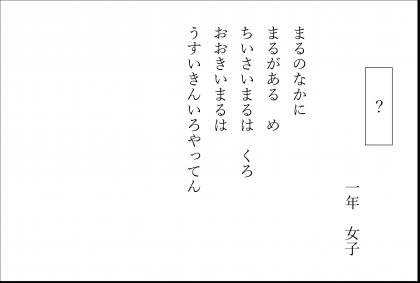 ？
一年　女子
まるのなかに
まるがある　め
ちいさいまるは　くろ
おおきいまるは
うすいきんいろやってん